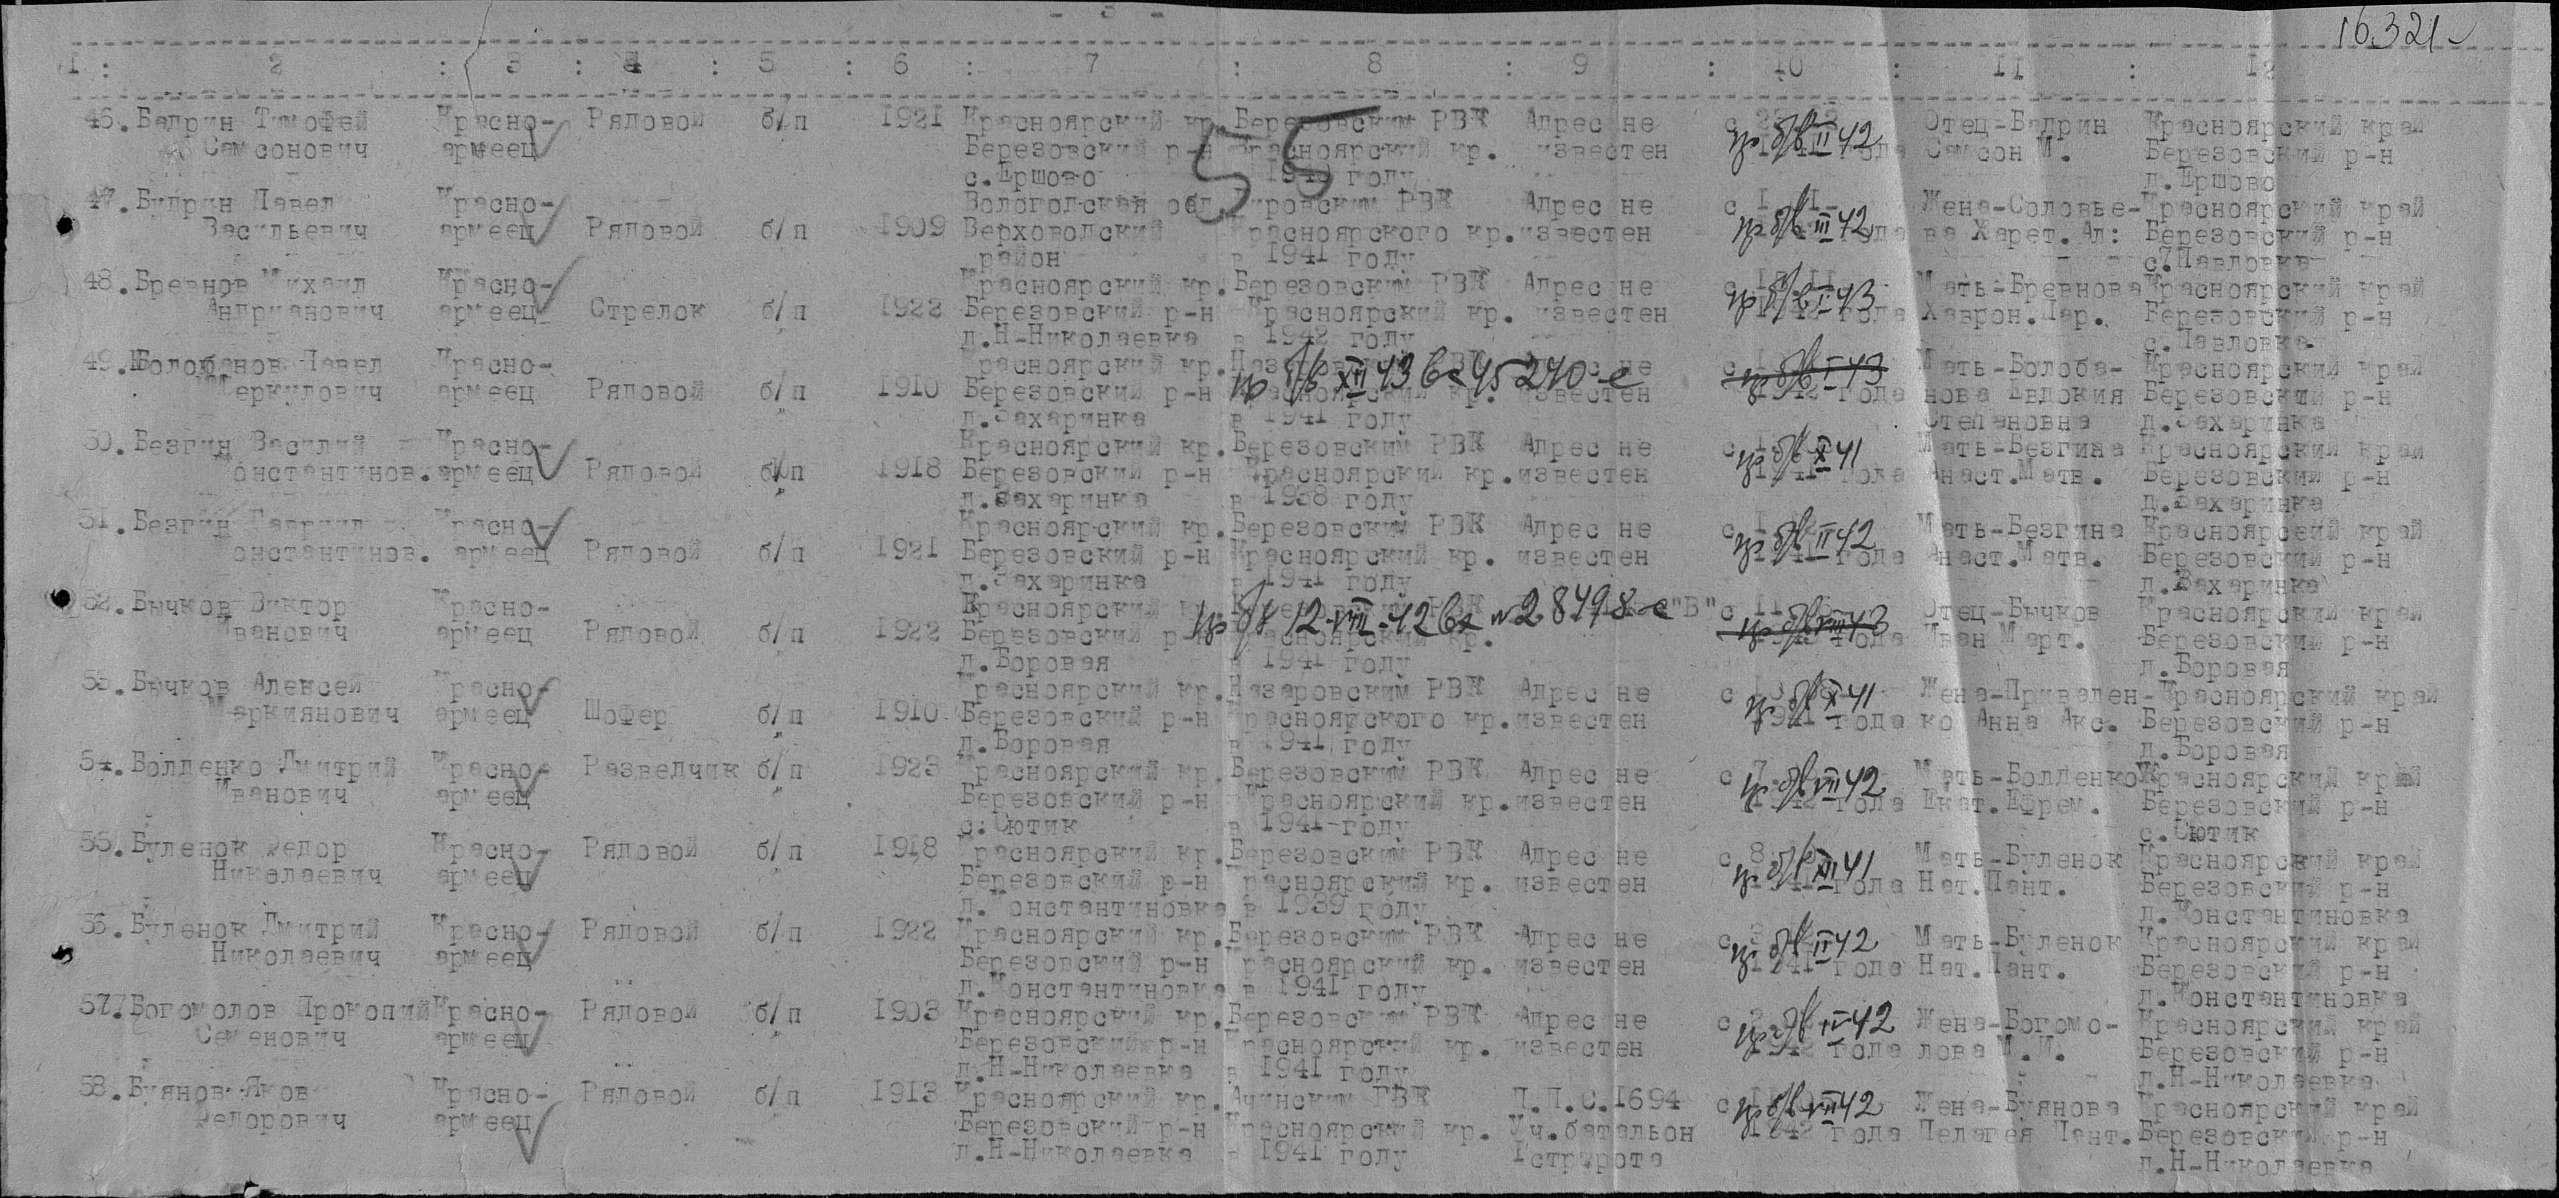 - 3 -
16321
1 : 2 : 3 : 4 : 5 : 6 : 7 : 8 : 9 : 10 : 11 : 12
55
46. Бадрин Тимофей Красно- Рядовой б/п 1921 Красноярский кр. Березовским РВК Адрес не с Отец-Бадрин Красноярский край
Самсонович армеец Березовский р-н Красноярский кр. известен пр б/в II 42 года Самсон М. Березовский р-н
с.Ершово 1940 году д.Ершово
47. Будрин Павел Красно- Вологодская обл. Кировским РВК Адрес не с Жена-Соловье- Красноярский край
Васильевич армеец Рядовой б/п 1909 Верховодский Красноярского кр. известен пр б/в III 42 года ва Харет.Ал: Березовский р-н
район в 1941 году с.Павловка
48. Бревнов Михаил Красно- Красноярский кр. Березовским РВК Адрес не с Мать-Бревнова Красноярский край
Андрианович армеец Стрелок б/п 1922 Березовский р-н Красноярский кр. известен пр б/в I 43 года Хаврон.Лар. Березовский р-н
д.Н-Николаевка в 1942 году с.Павловка
49. Болобанов Павел Красно- Красноярский кр. не с Мать-Болоба- Красноярский край
Меркулович армеец Рядовой б/п 1910 Березовский р-н пр б/в XII 43 вх 45270 с Красноярский кр. известен пр б/в I 43 года нова Евдокия Березовский р-н
д.Захаринка в 1941 году Степановна д.Захаринка
50. Безгин Василий Красно- Красноярский кр. Березовским РВК Адрес не с Мать-Безгина Красноярский край
Константинов. армеец Рядовой б/п 1918 Березовский р-н Красноярский кр. известен пр б/в X 41 года Анаст.Матв. Березовский р-н
д.Захаринка в 1938 году д.Захаринка
51. Безгин Гавриил Красно- Красноярский кр. Березовским РВК Адрес не с Мать-Безгина Красноярский край
Константинов. армеец Рядовой б/п 1921 Березовский р-н Красноярский кр. известен пр б/в II 42 года Анаст.Матв. Березовский р-н
д.Захаринка в 1941 году д.Захаринка
52. Бычков Виктор Красно- Красноярский кр. "В" с Отец-Бычков Красноярский край
Иванович армеец Рядовой б/п 1922 Березовский р-н пр б/в 12-VIII-42 вх №28498 с Красноярский кр. пр б/в VIII 43 года Иван Март. Березовский р-н
д.Боровая в 1941 году д.Боровая
53. Бычков Алексей Красно- Красноярский кр. Назаровским РВК Адрес не с Жена-Привален- Красноярский край
Маркиянович армеец Шофер б/п 1910 Березовский р-н Красноярского кр. известен пр б/в X 41 года ко Анна Акс. Березовский р-н
д.Боровая в 1941 году д.Боровая
54. Болденко Дмитрий Красно- Разведчик б/п 1923 Красноярский кр. Березовским РВК Адрес не с Мать-Болденко Красноярский край
Иванович армеец Березовский р-н Красноярский кр. известен пр б/в VII 42 года Екат.Ефрем. Березовский р-н
с.Сютик в 1941 году с.Сютик
55. Буленок Федор Красно- Рядовой б/п 1918 Красноярский кр. Березовским РВК Адрес не с 8 Мать-Буленок Красноярский край
Николаевич армеец Березовский р-н Красноярский кр. известен пр б/в XII 41 года Нат.Пант. Березовский р-н
д.Константиновка в 1939 году д.Константиновка
56. Буленок Дмитрий Красно- Рядовой б/п 1922 Красноярский кр. Березовским РВК Адрес не с Мать-Буленок Красноярский край
Николаевич армеец Березовский р-н Красноярский кр. известен пр б/в II 42 года Нат.Пант. Березовский р-н
д.Константиновка в 1941 году д.Константиновка
57. Богомолов Прокопий Красно- Рядовой б/п 1903 Красноярский кр. Березовским РВК Адрес не с Жена-Богомо- Красноярский край
Семенович армеец Березовский р-н Красноярский кр. известен пр б/в IV 42 года лова М.И. Березовский р-н
д.Н-Николаевка в 1941 году д.Н-Николаевка
58. Буянов Яков Красно- Рядовой б/п 1913 Красноярский кр. Ачинским РВК П.П.с.1694 с Жена-Буянова Красноярский край
Федорович армеец Березовский р-н Красноярский кр. Уч.батальон пр б/в VII 42 1942 года Пелагея Пант. Березовский р-н
д.Н-Николаевка в 1941 году 1стр.рота д.Н-Николаевка